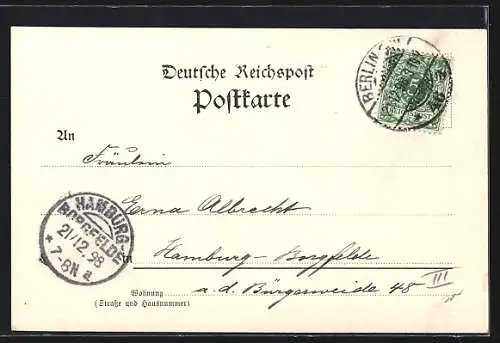 Deutsche Reichspost
Postkarte
BERLIN
An
Fräulein
Erna Albrecht
in Hamburg-Borgfelde
a. d. Bürgerweide 48 III
Wohnung
(Straße und Hausnummer)
HAMBURG
BORGFELDE
21/12.98
* 7-8N a